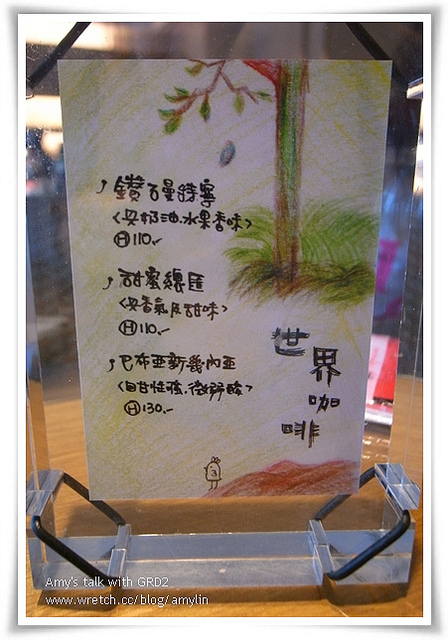 鑽石曼特寧
<奶油.水果香味>
H 110.-
甜蜜總匯
<香氣及甜味>
H 110.-
巴布亞新幾內亞
<回甘性強.微酸>
H 130.-
世界咖啡
3
Amy's talk with GRD2
www.wretch.cc/blog/amylin